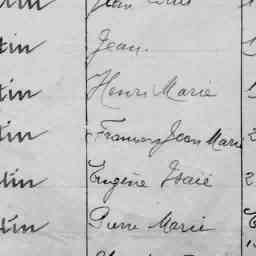 tin Jean.
tin Henri Marie
tin François Jean Marie
tin Eugène Isaïe
tin Pierre Marie